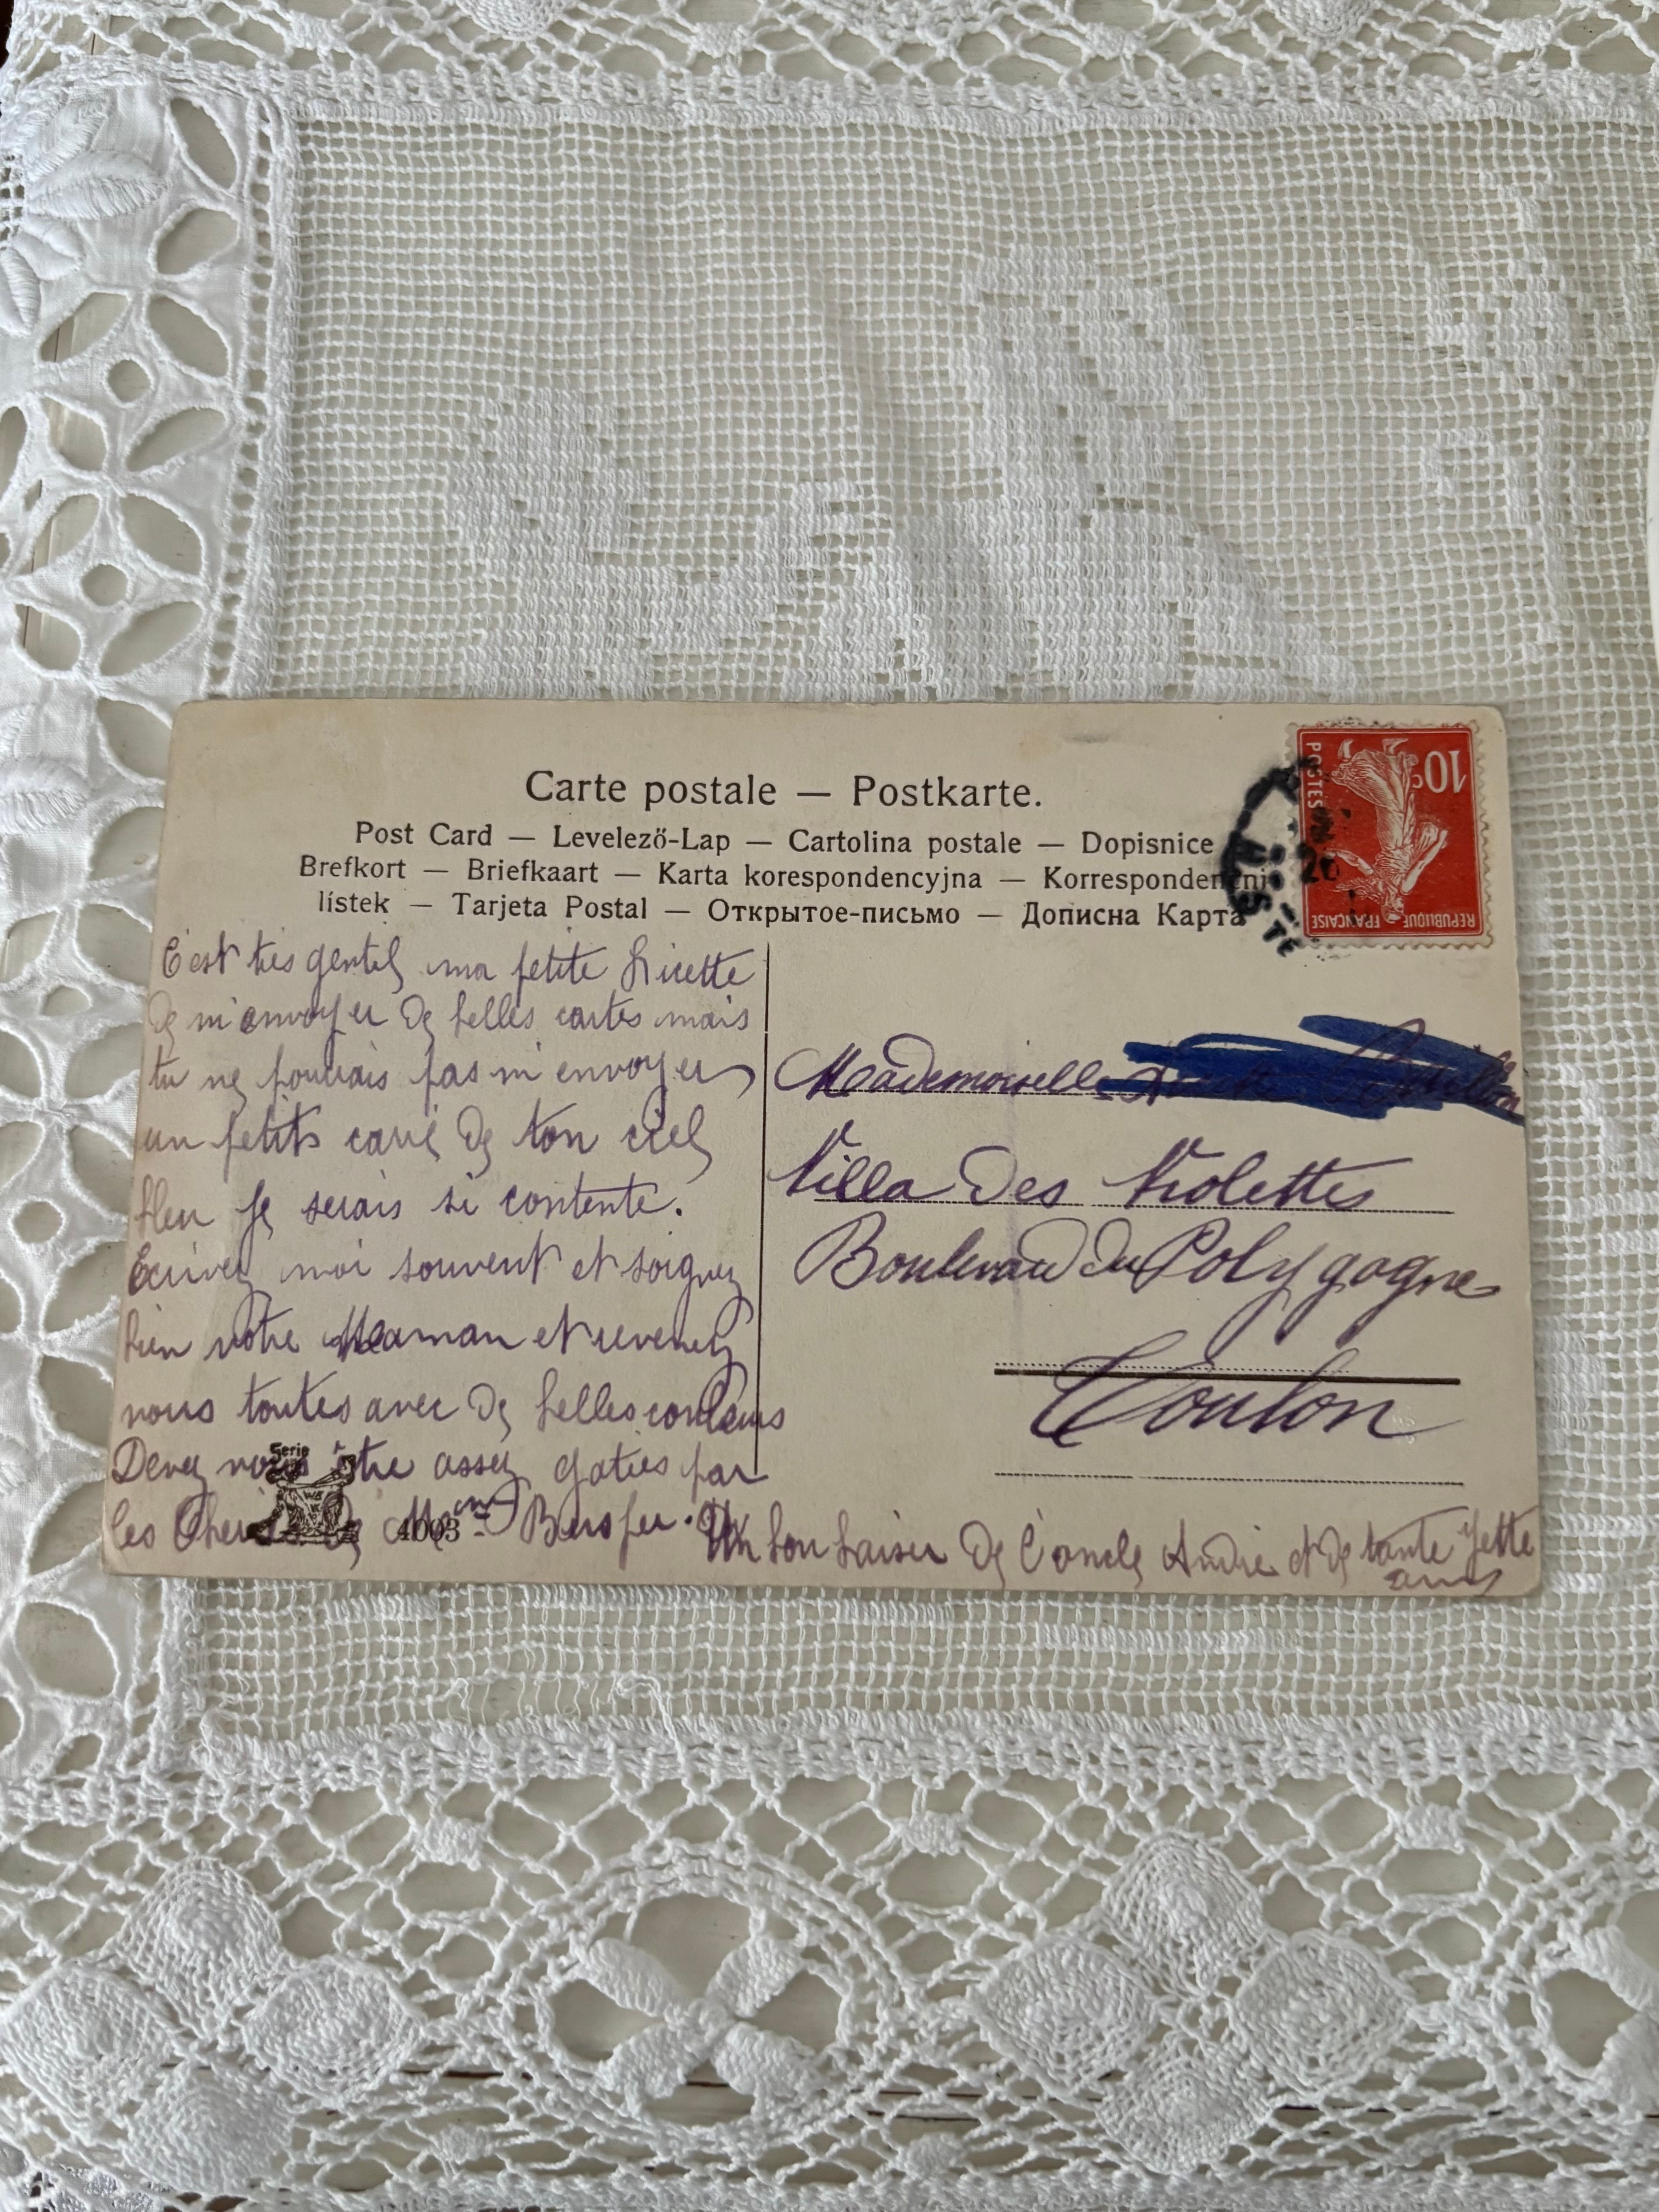 Carte postale — Postkarte.
Post Card — Levelező-Lap — Cartolina postale — Dopisnice
Brefkort — Briefkaart — Karta korespondencyjna — Korrespondenčni
lístek — Tarjeta Postal — Открытое-письмо — Дописна Карта
10c
POSTES
REPUBLIQUE FRANÇAISE
C'est très gentil ma petite
de m'envoyer de belles cartes mais
tu ne pouvais pas m'envoyer
un petits carré de ton ciel
bleu je serais si contente.
Ecrivez moi souvent et soignez
bien votre Maman et revenez
nous toutes avec de belles couleurs
Devez vous être assez gatées par
les de
Un bon baiser de l'oncle André et de tante Yette
Serie
4003
Mademoiselle
Villa des Violettes
Boulevard du Polygogne
Toulon